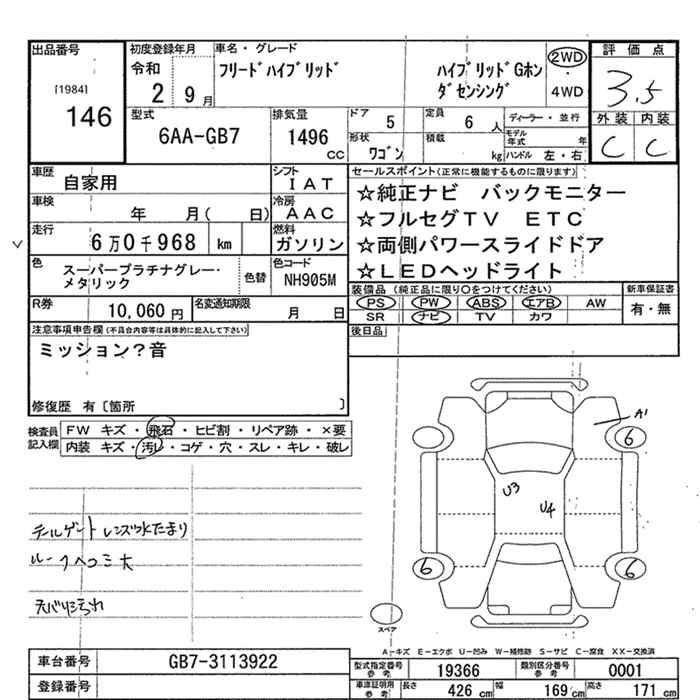 出品番号
[1984]
146
初度登録年月
令和
2 9月
車名・グレード
フリードハイブリッド
ハイブリッドGホン
ダセンシング
2WD
・
4WD
評価点
3.5
外装 内装
C C
型式
6AA-GB7
排気量
1496
cc
ドア
5
定員
6人
ディーラー・並行
形状
ワゴン
積載
kg
モデル年式 年
ハンドル 左・右
車歴
自家用
シフト
IAT
車検
年 月( 日)
冷房
AAC
走行
6万0千968 km
燃料
ガソリン
色
スーパープラチナグレー・
メタリック
色替
色コード
NH905M
R券
10,060円
名変通知期限
月 日
セールスポイント(正常に機能するものに限ります)
☆純正ナビ バックモニター
☆フルセグTV ETC
☆両側パワースライドドア
☆LEDヘッドライト
装備品 (純正品に限り○をつけてください)
PS PW ABS エアB AW
SR ナビ TV カワ
新車保証書
有・無
後日品
注意事項申告欄(不具合内容等は具体的に記入して下さい)
ミッション?音
修復歴 有〔箇所 〕
検査員
記入欄
FW キズ・飛石・ヒビ割・リペア跡・×要
内装 キズ・汚レ・コゲ・穴・スレ・キレ・破レ
テールゲート レンズ水たまり
ルーフヘコミ大
天バリ汚れ
A1
6
6
U3
U4
6
6
スペア
A-キズ E-エクボ U-凹み W-補修跡 S-サビ C-腐食 XX-交換済
車台番号
GB7-3113922
登録番号
型式指定番号
参考
19366
類別区分番号
参考
0001
車庫証明用
参考
長さ
426 cm
幅
169 cm
高さ
171 cm